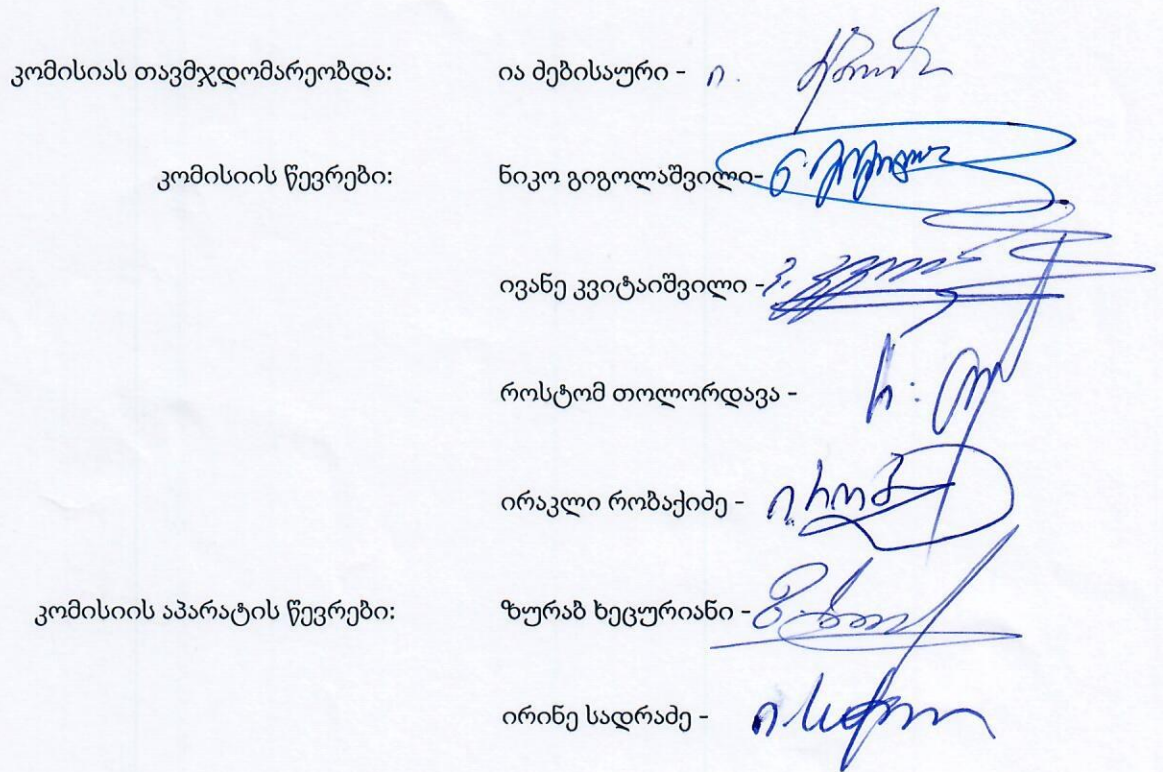 კომისიას თავმჯდომარეობდა: ია ძებისაური - ი.
კომისიის წევრები: ნიკო გიგოლაშვილი-
ივანე კვიტაიშვილი -
როსტომ თოლორდავა -
ირაკლი რობაქიძე - ი. რობ
კომისიის აპარატის წევრები: ზურაბ ხეცურიანი -
ირინე სადრაძე -